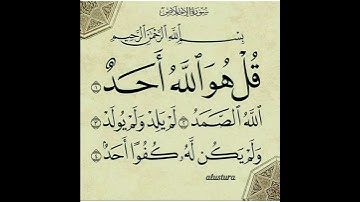 سُورَةُ الإِخْلَاصِ
بِسْمِ اللَّهِ الرَّحْمَٰنِ الرَّحِيمِ
قُلْ هُوَ ٱللَّهُ أَحَدٌ ١
ٱللَّهُ ٱلصَّمَدُ ٢ لَمْ يَلِدْ وَلَمْ يُولَدْ ٣
وَلَمْ يَكُن لَّهُۥ كُفُوًا أَحَدٌۢ ٤
alustura